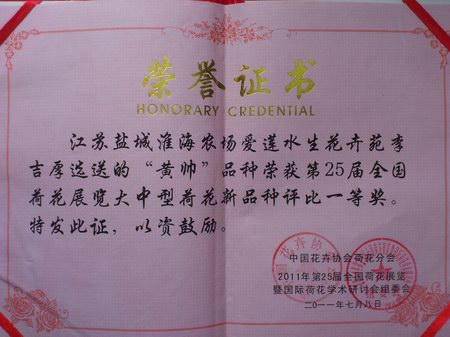 荣誉证书
HONORARY CREDENTIAL
江苏盐城淮海农场爱莲水生花卉苑李
吉厚选送的“黄帅”品种荣获第25届全国
荷花展览大中型荷花新品种评比一等奖。
特发此证，以资鼓励。
中国花卉协会荷花分会
2011年第25届全国荷花展览
暨国际荷花学术研讨会组委会
二〇一一年七月八日